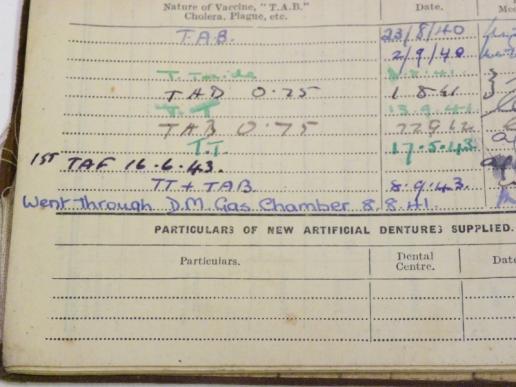 Nature of Vaccine, "T.A.B." Date. Me
Cholera, Plague, etc.
T.A.B. 23/8/40
2/9/40
T.
TAB 0.25 1 8 41
T.T 13.9.41
TAB 0.75 22 9 42
T.T. 17.5.43
1ST TAF 16.6.43.
TT + TAB 8.9.43.
Went through D.M. Gas Chamber 8.8.41.
PARTICULARS OF NEW ARTIFICIAL DENTURES SUPPLIED.
Particulars. Dental Centre. Date